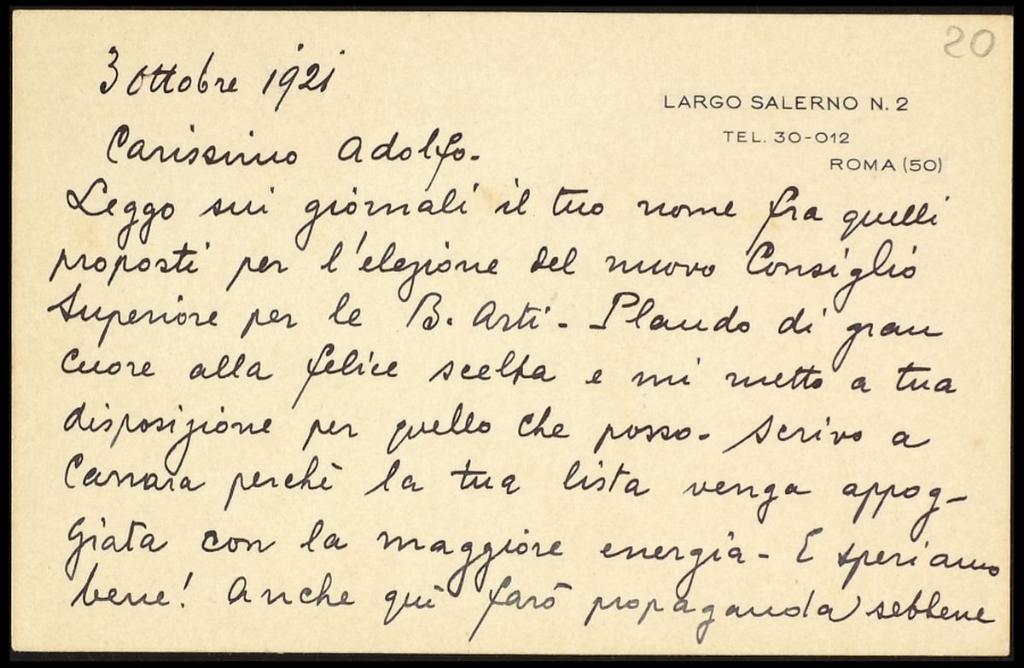 20
3 Ottobre 1921
LARGO SALERNO N. 2
TEL. 30-012
ROMA (50)
Carissimo Adolfo.
Leggo sui giornali il tuo nome fra quelli
proposti per l'elezione del nuovo Consiglio
Superiore per le B. Arti - Plaudo di gran
cuore alla felice scelta e mi metto a tua
disposizione per quello che posso. Scrivo a
Carrara perchè la tua lista venga appog-
giata con la maggiore energia - E speriamo
bene! Anche quì farò propaganda sebbene